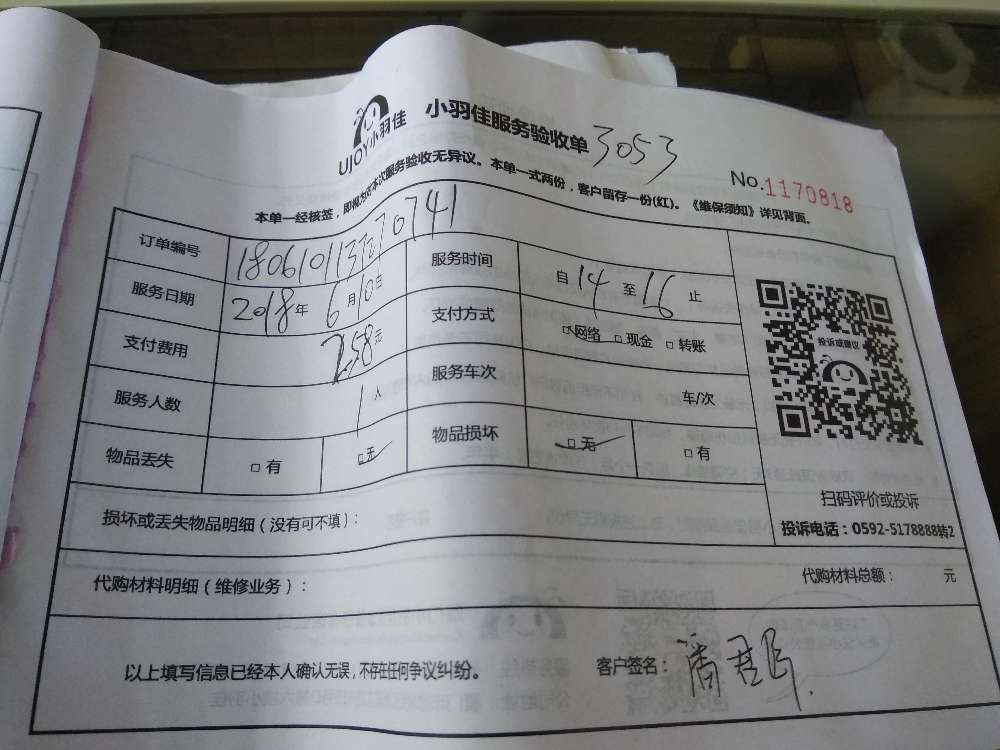 UJOY小羽佳 小羽佳服务验收单 3053
No.1170818
本单一经核签，即视为对本次服务验收无异议。本单一式两份，客户留存一份(红)。《维保须知》详见背面。
订单编号 服务时间 自 14 至 16 止
服务日期 2018年 6月10日 支付方式 □网络 □现金 □转账
支付费用 258元 服务车次 车/次
服务人数 1人 物品损坏 □无 □有
物品丢失 □有 □无
投诉或建议
扫码评价或投诉
投诉电话：0592-5178888转2
损坏或丢失物品明细（没有可不填）：
代购材料明细（维修业务）： 代购材料总额： 元
以上填写信息已经本人确认无误，不存在任何争议纠纷。 客户签名：潘